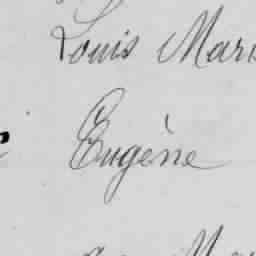 Louis Mari
Eugène